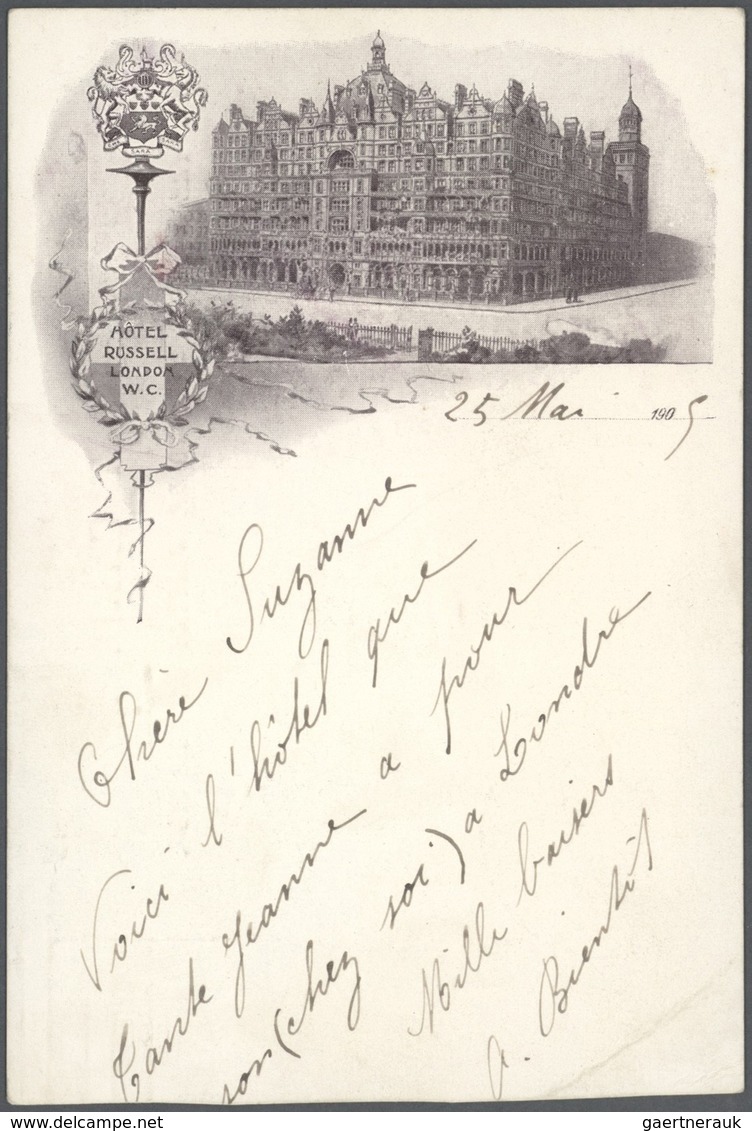 CHE SARA SARA
HÔTEL
RUSSELL
LONDON
W.C.
25 Mai 1905
Chère Suzanne
Voici l'hôtel que
Tante Jeanne a pour
son (chez soi) a Londre
Mille baisers
A. Bientôt
gaertnerauk